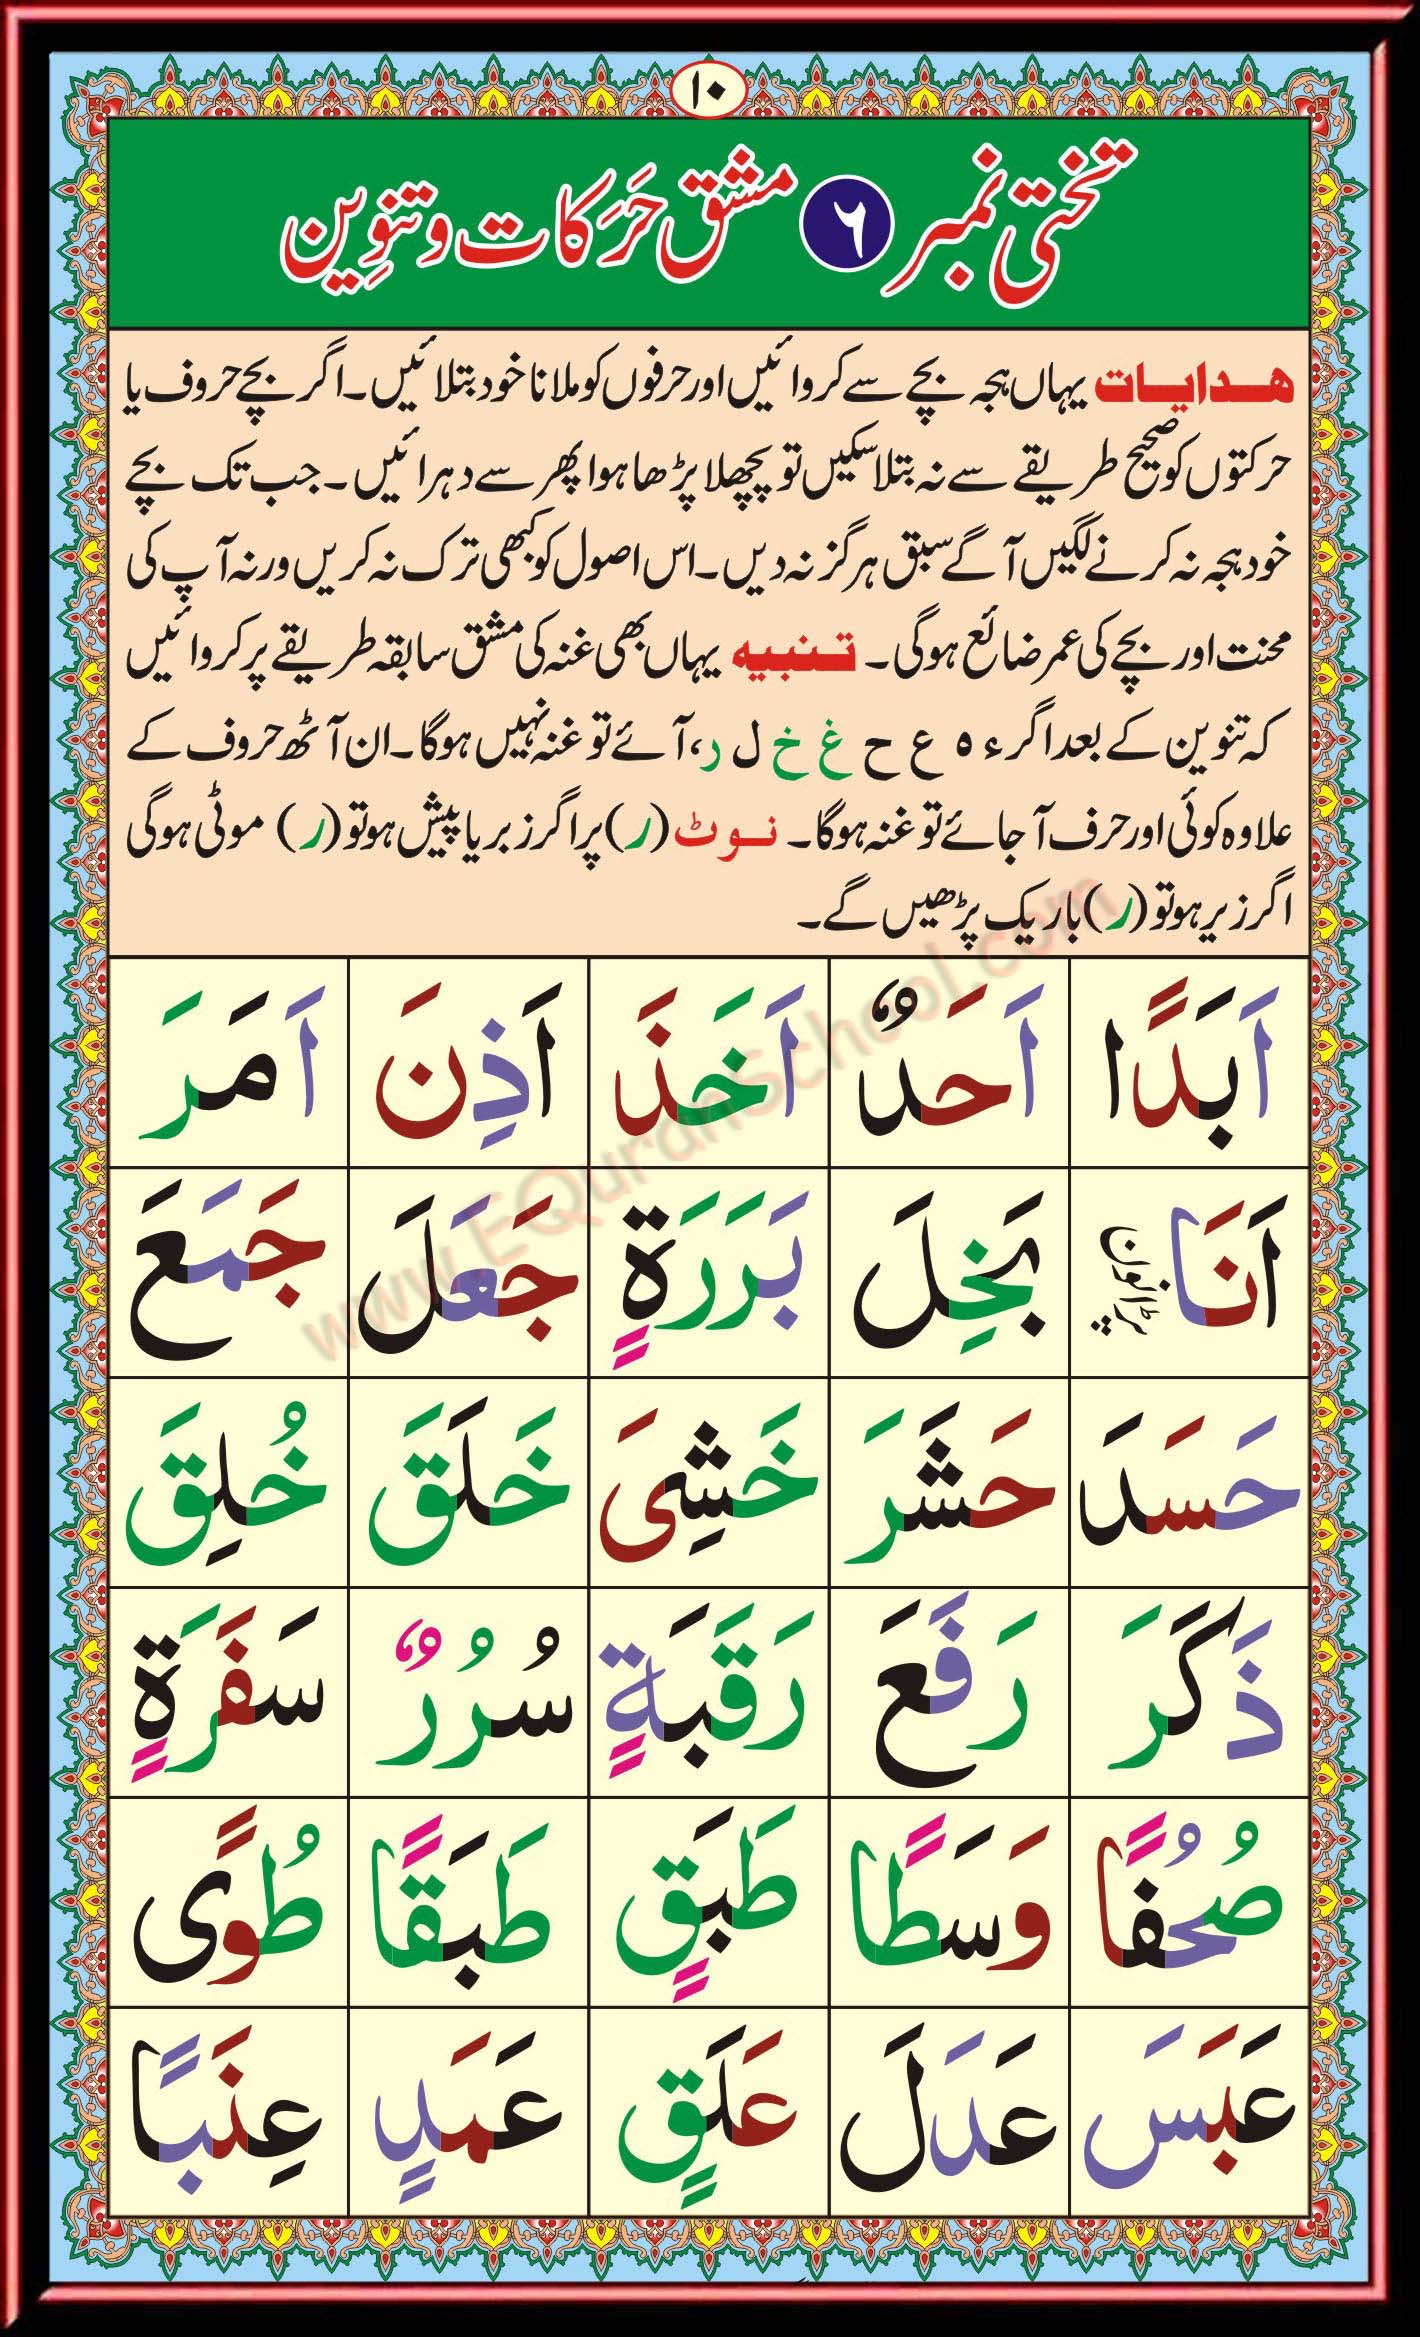 ۱۰
تختی نمبر ۶ مشق حَرَکات و تنوِین
ھدایات یہاں ہجہ بچے سے کروائیں اور حرفوں کو ملانا خود بتلائیں۔ اگر بچے حروف یا
حرکتوں کو صحیح طریقے سے نہ بتلا سکیں تو پچھلا پڑھا ہوا پھر سے دہرائیں۔ جب تک بچے
خود ہجہ نہ کرنے لگیں آگے سبق ہرگز نہ دیں۔ اس اصول کو کبھی ترک نہ کریں ورنہ آپ کی
محنت اور بچے کی عمر ضائع ہوگی۔ تنبیہ یہاں بھی غنہ کی مشق سابقہ طریقے پر کروائیں
کہ تنوین کے بعد اگر ء ہ ع ح غ خ ل ر، آئے تو غنہ نہیں ہوگا۔ ان آٹھ حروف کے
علاوہ کوئی اور حرف آ جائے تو غنہ ہوگا۔ نوٹ (ر) پر اگر زبر یا پیش ہو تو (ر) موٹی ہوگی
اگر زیر ہو تو (ر) باریک پڑھیں گے۔
اَبَدًا اَحَدٌ اَخَذَ اَذِنَ اَمَرَ
اَنَا پڑا نُون بَخِلَ بَرَرَةٍ جَعَلَ جَمَعَ
حَسَدَ حَشَرَ خَشِیَ خَلَقَ خُلِقَ
ذَكَرَ رَفَعَ رَقَبَةٍ سُرُرٌ سَفَرَةٍ
صُحُفًا وَسَطًا طَبَقٍ طَبَقًا طُوًی
عَبَسَ عَدَلَ عَلَقٍ عَمَدٍ عِنَبًا
www.EQuranSchool.com